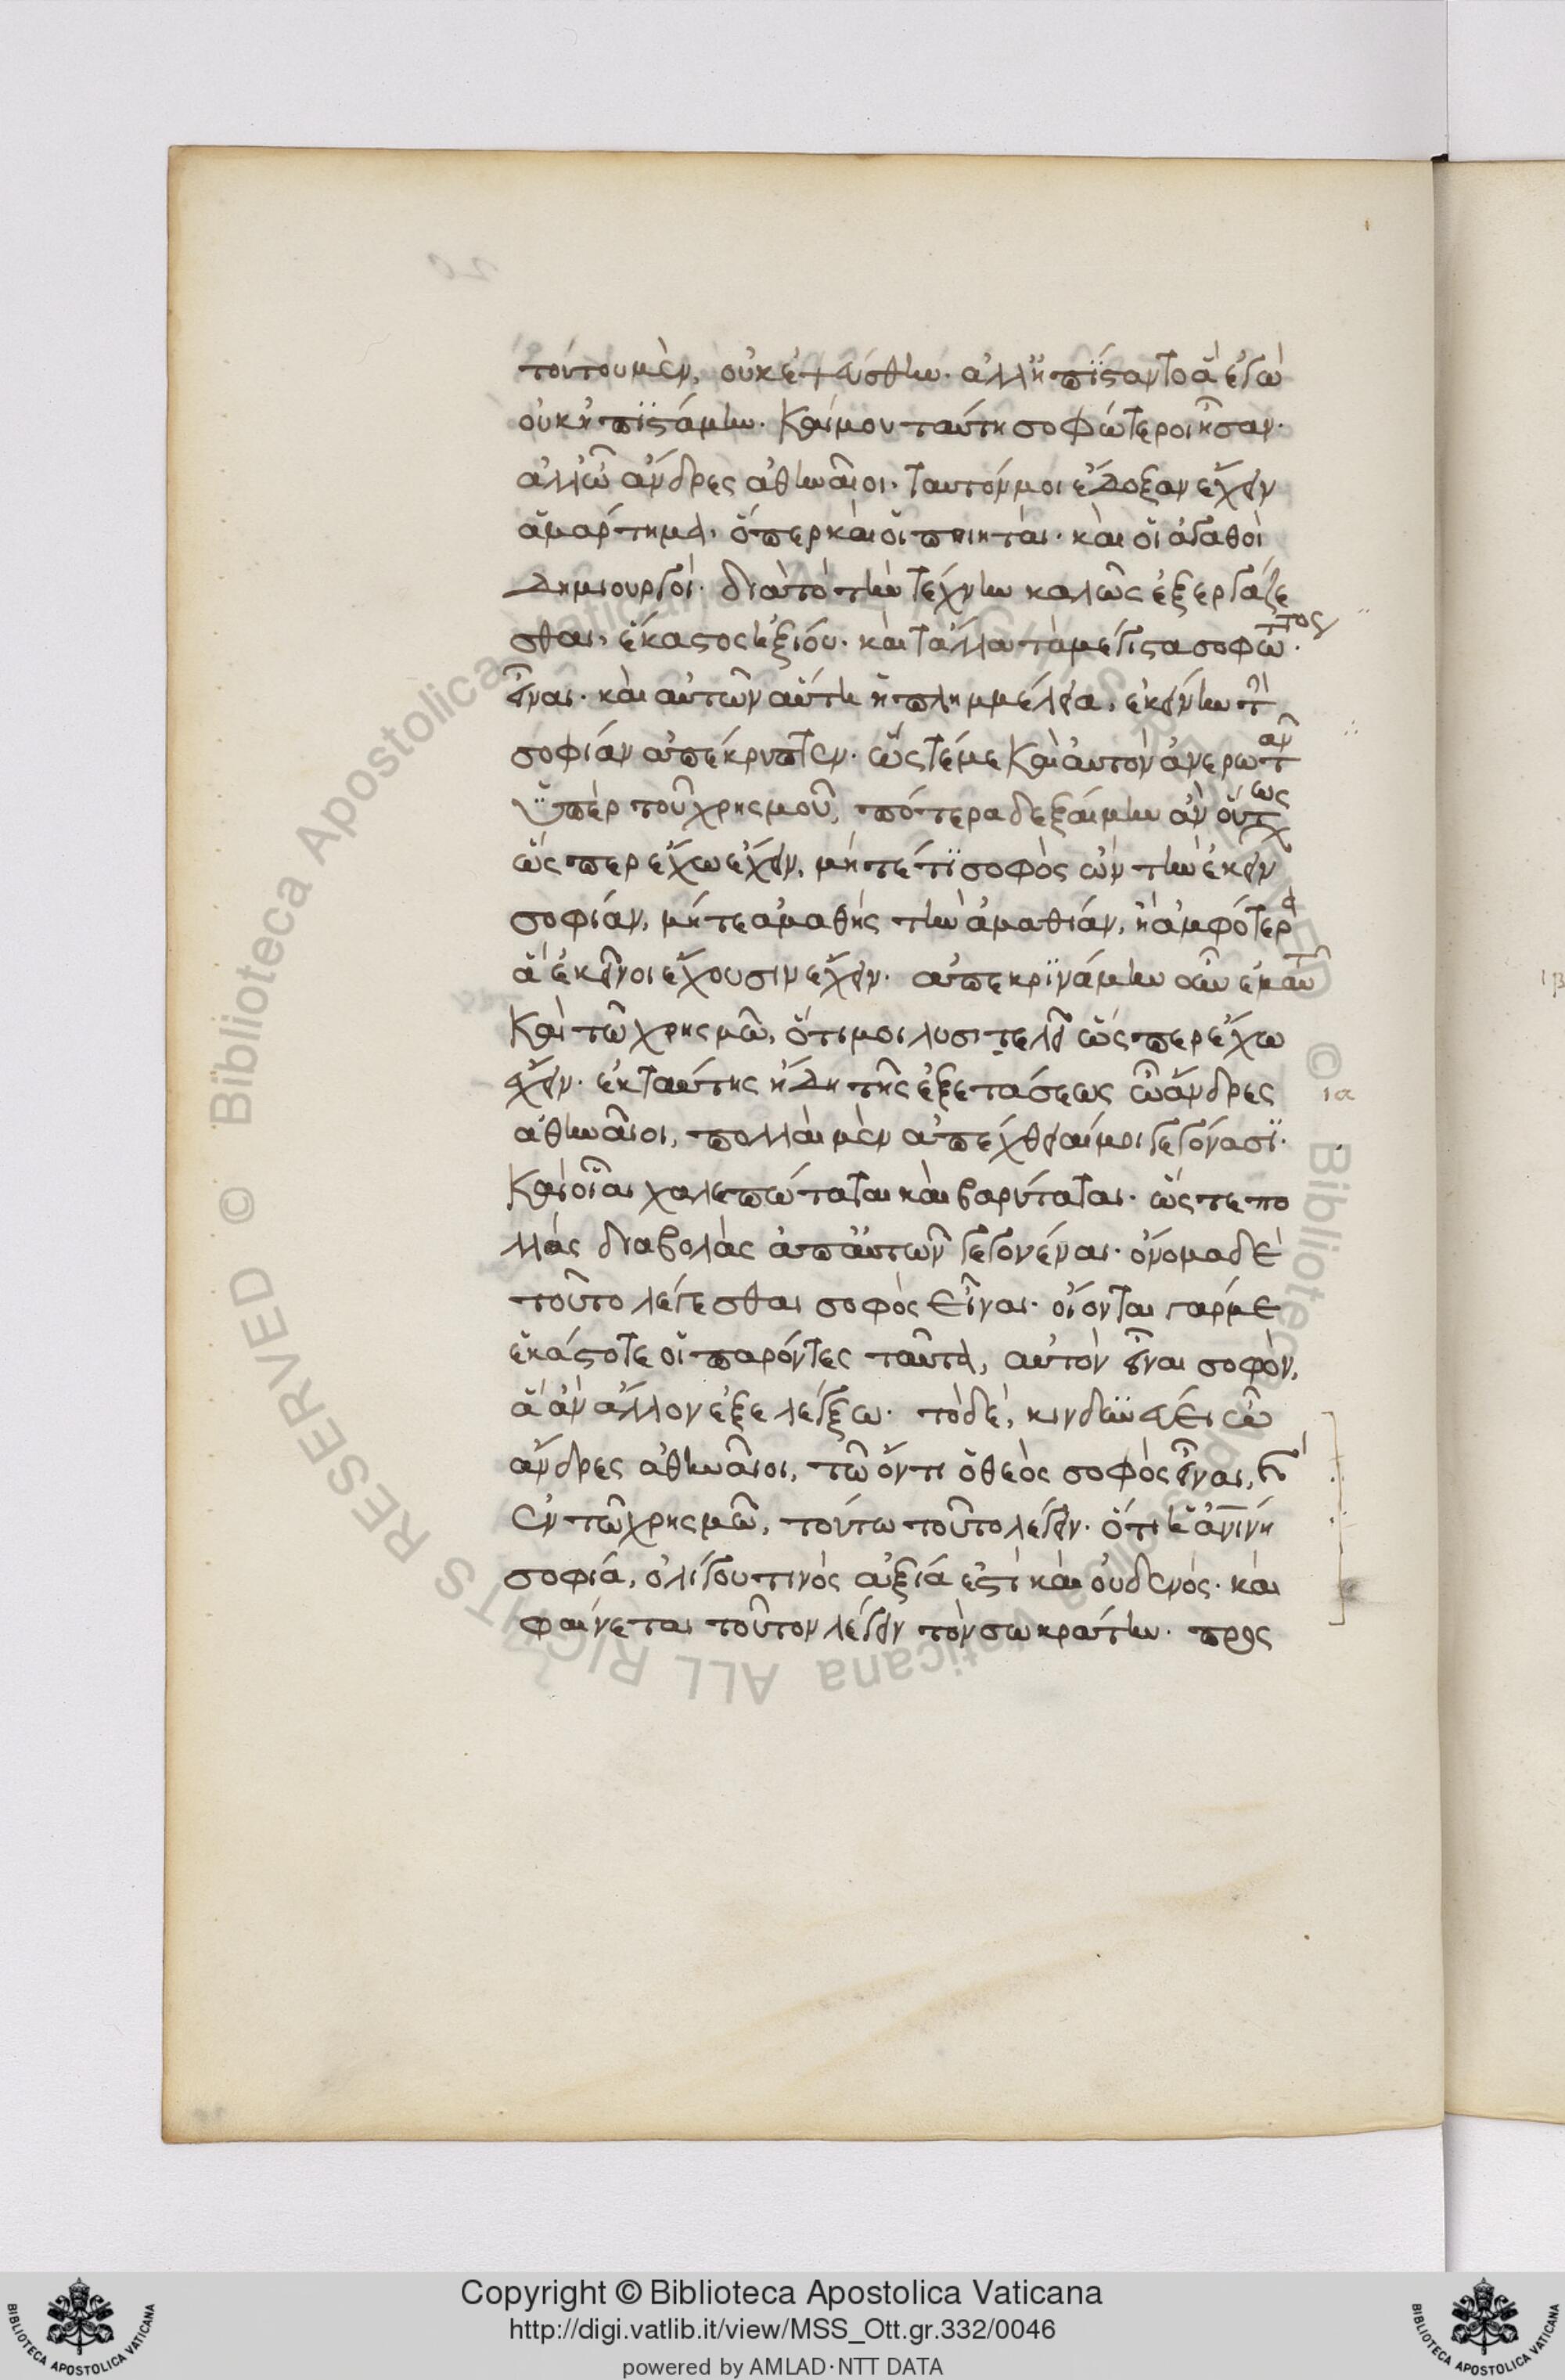 τούτου μὲν, οὐκ ἐψεύσθην. ἀλλ' ἠπίσταντο ἃ ἐγὼ
οὐκ ἠπιστάμην. καί μου ταύτη σοφώτεροι ἦσαν.
ἀλλ' ὦ ἄνδρες ἀθηναῖοι. ταυτόν μοι ἔδοξαν ἔχειν
ἁμάρτημα, ὅπερ καὶ οἱ ποιηταί. καὶ οἱ ἀγαθοὶ
δημιουργοί. διὰ τὸ τὴν τέχνην καλῶς ἐξεργάζε
σθαι, ἕκαστος ἠξίου. καὶ τἄλλα τὰ μέγιστα σοφώτατος
εἶναι. καὶ αὐτῶν αὕτη ἡ πλημμέλεια, ἐκείνην τὴν
σοφίαν ἀπέκρυπτεν. ὥστέ με καὶ αὐτὸν ἀνερωτᾶν
ὑπὲρ τοῦ χρησμοῦ, πότερα δεξαίμην ἂν οὕτως
ὥσπερ ἔχω ἔχειν, μήτέ τι σοφὸς ὢν τὴν ἐκείνων
σοφίαν, μήτε ἀμαθὴς τὴν ἀμαθίαν, ἢ ἀμφότερα
ἃ ἐκεῖνοι ἔχουσιν ἔχειν. ἀπεκρινάμην οὖν ἐμαυτῶ
καὶ τῶ χρησμῶ, ὅτι μοι λυσιτελεῖ ὥσπερ ἔχω
ἔχειν. ἐκ ταύτης ἤδη τῆς ἐξετάσεως ὦ ἄνδρες
ἀθηναῖοι, πολλαὶ μὲν ἀπέχθειαί μοι γεγόνασι.
καὶ οἷαι χαλεπώταται καὶ βαρύταται. ὥστε πο
λλὰς διαβολὰς ἀπ' αὐτῶν γεγονέναι. ὄνομα δὲ
τοῦτο λέγεσθαι σοφὸς εἶναι. οἴονται γάρ με
ἑκάστοτε οἱ παρόντες ταῦτα, αὐτὸν εἶναι σοφὸν,
ἃ ἂν ἄλλον ἐξελέγξω. τὸ δὲ, κινδυνεύει ὦ
ἄνδρες ἀθηναῖοι, τῶ ὄντι ὁ θεὸς σοφὸς εἶναι, καὶ
ἐν τῶ χρησμῶ, τούτω τοῦτο λέγειν. ὅτι ἡ ἀνίνη
σοφία, ὀλίγου τινὸς ἀξία ἐστὶ καὶ οὐδενός. καὶ
φαίνεται τοῦτον λέγειν τὸν σωκράτην. προς
ια
Copyright © Biblioteca Apostolica Vaticana
http://digi.vatlib.it/view/MSS_Ott.gr.332/0046
powered by AMLAD·NTT DATA
BIBLIOTECA APOSTOLICA VATICANA
BIBLIOTECA APOSTOLICA VATICANA